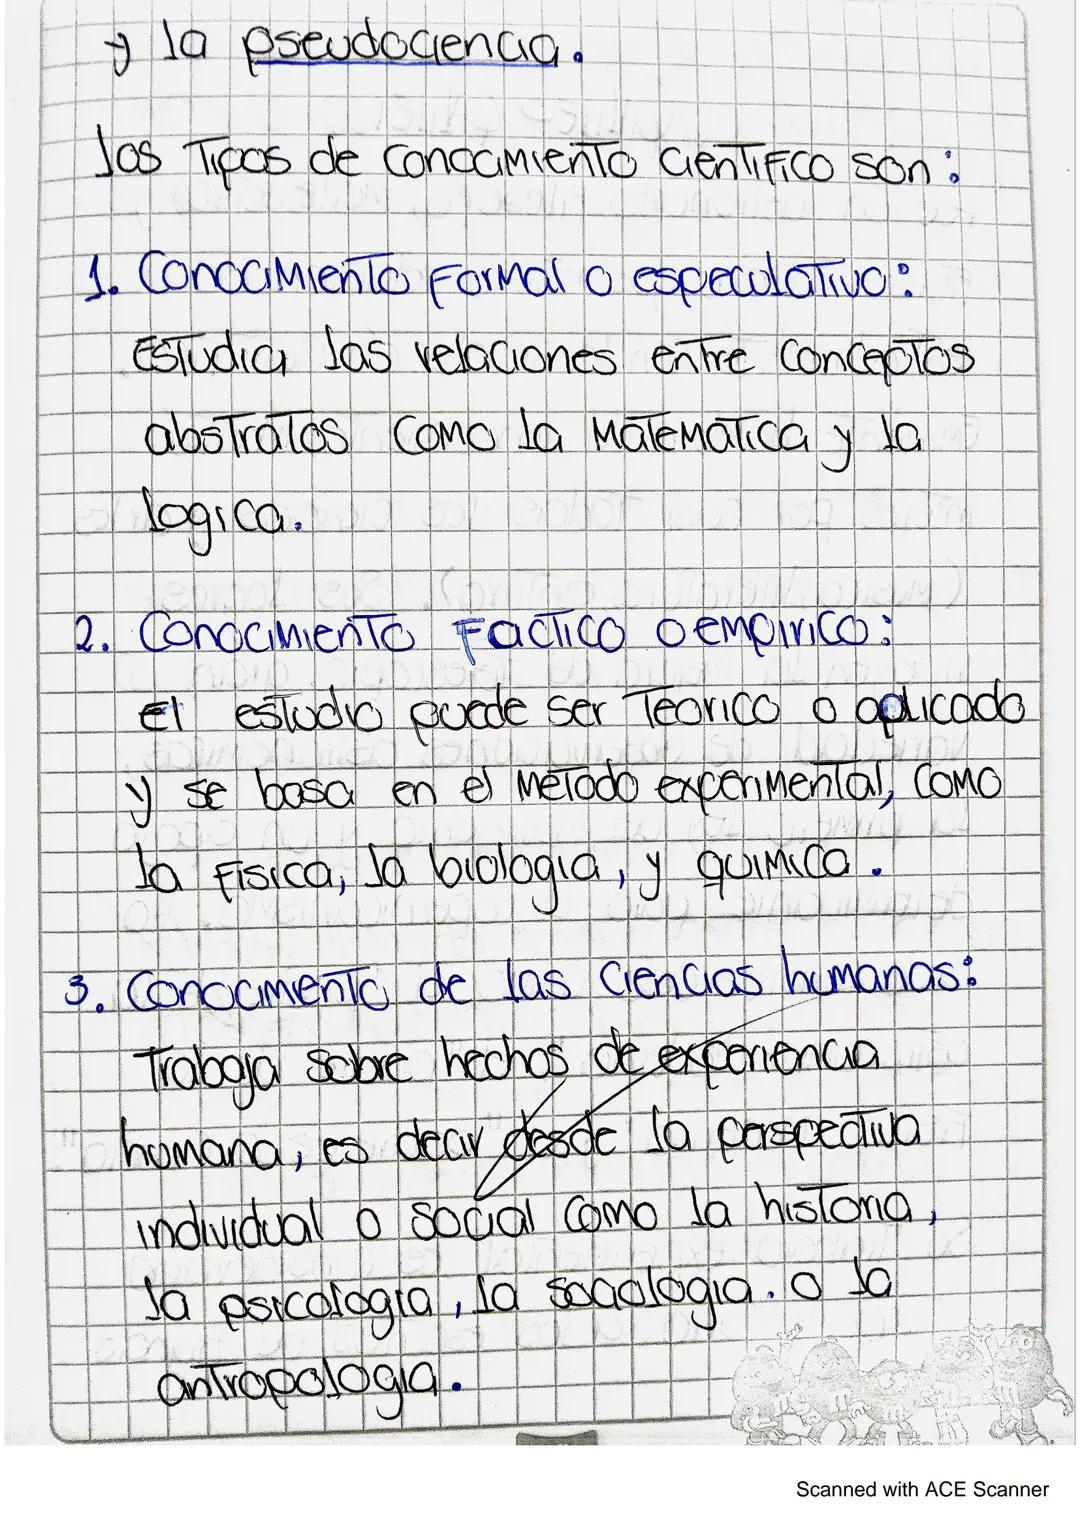 y la pseudociencia.
los Tipos de conocimiento cientifico son:
1. Conocimiento Formal o especulativo:
Estudia las relaciones entre conceptos
abstratos como la matematica y la
logica.
2. Conocimiento Factico o empirico:
El estudio puede ser Teorico o aplicado
y se basa en el metodo experimental, como
la Fisica, la biologia, y quimica.
3. Conocimento de las ciencias humanas:
Trabaja sobre hechos de experiencia
humana, es decir desde la perspectiva
individual o social como la historia,
la psicologia, la sociologia. o la
antropologia.
Scanned with ACE Scanner